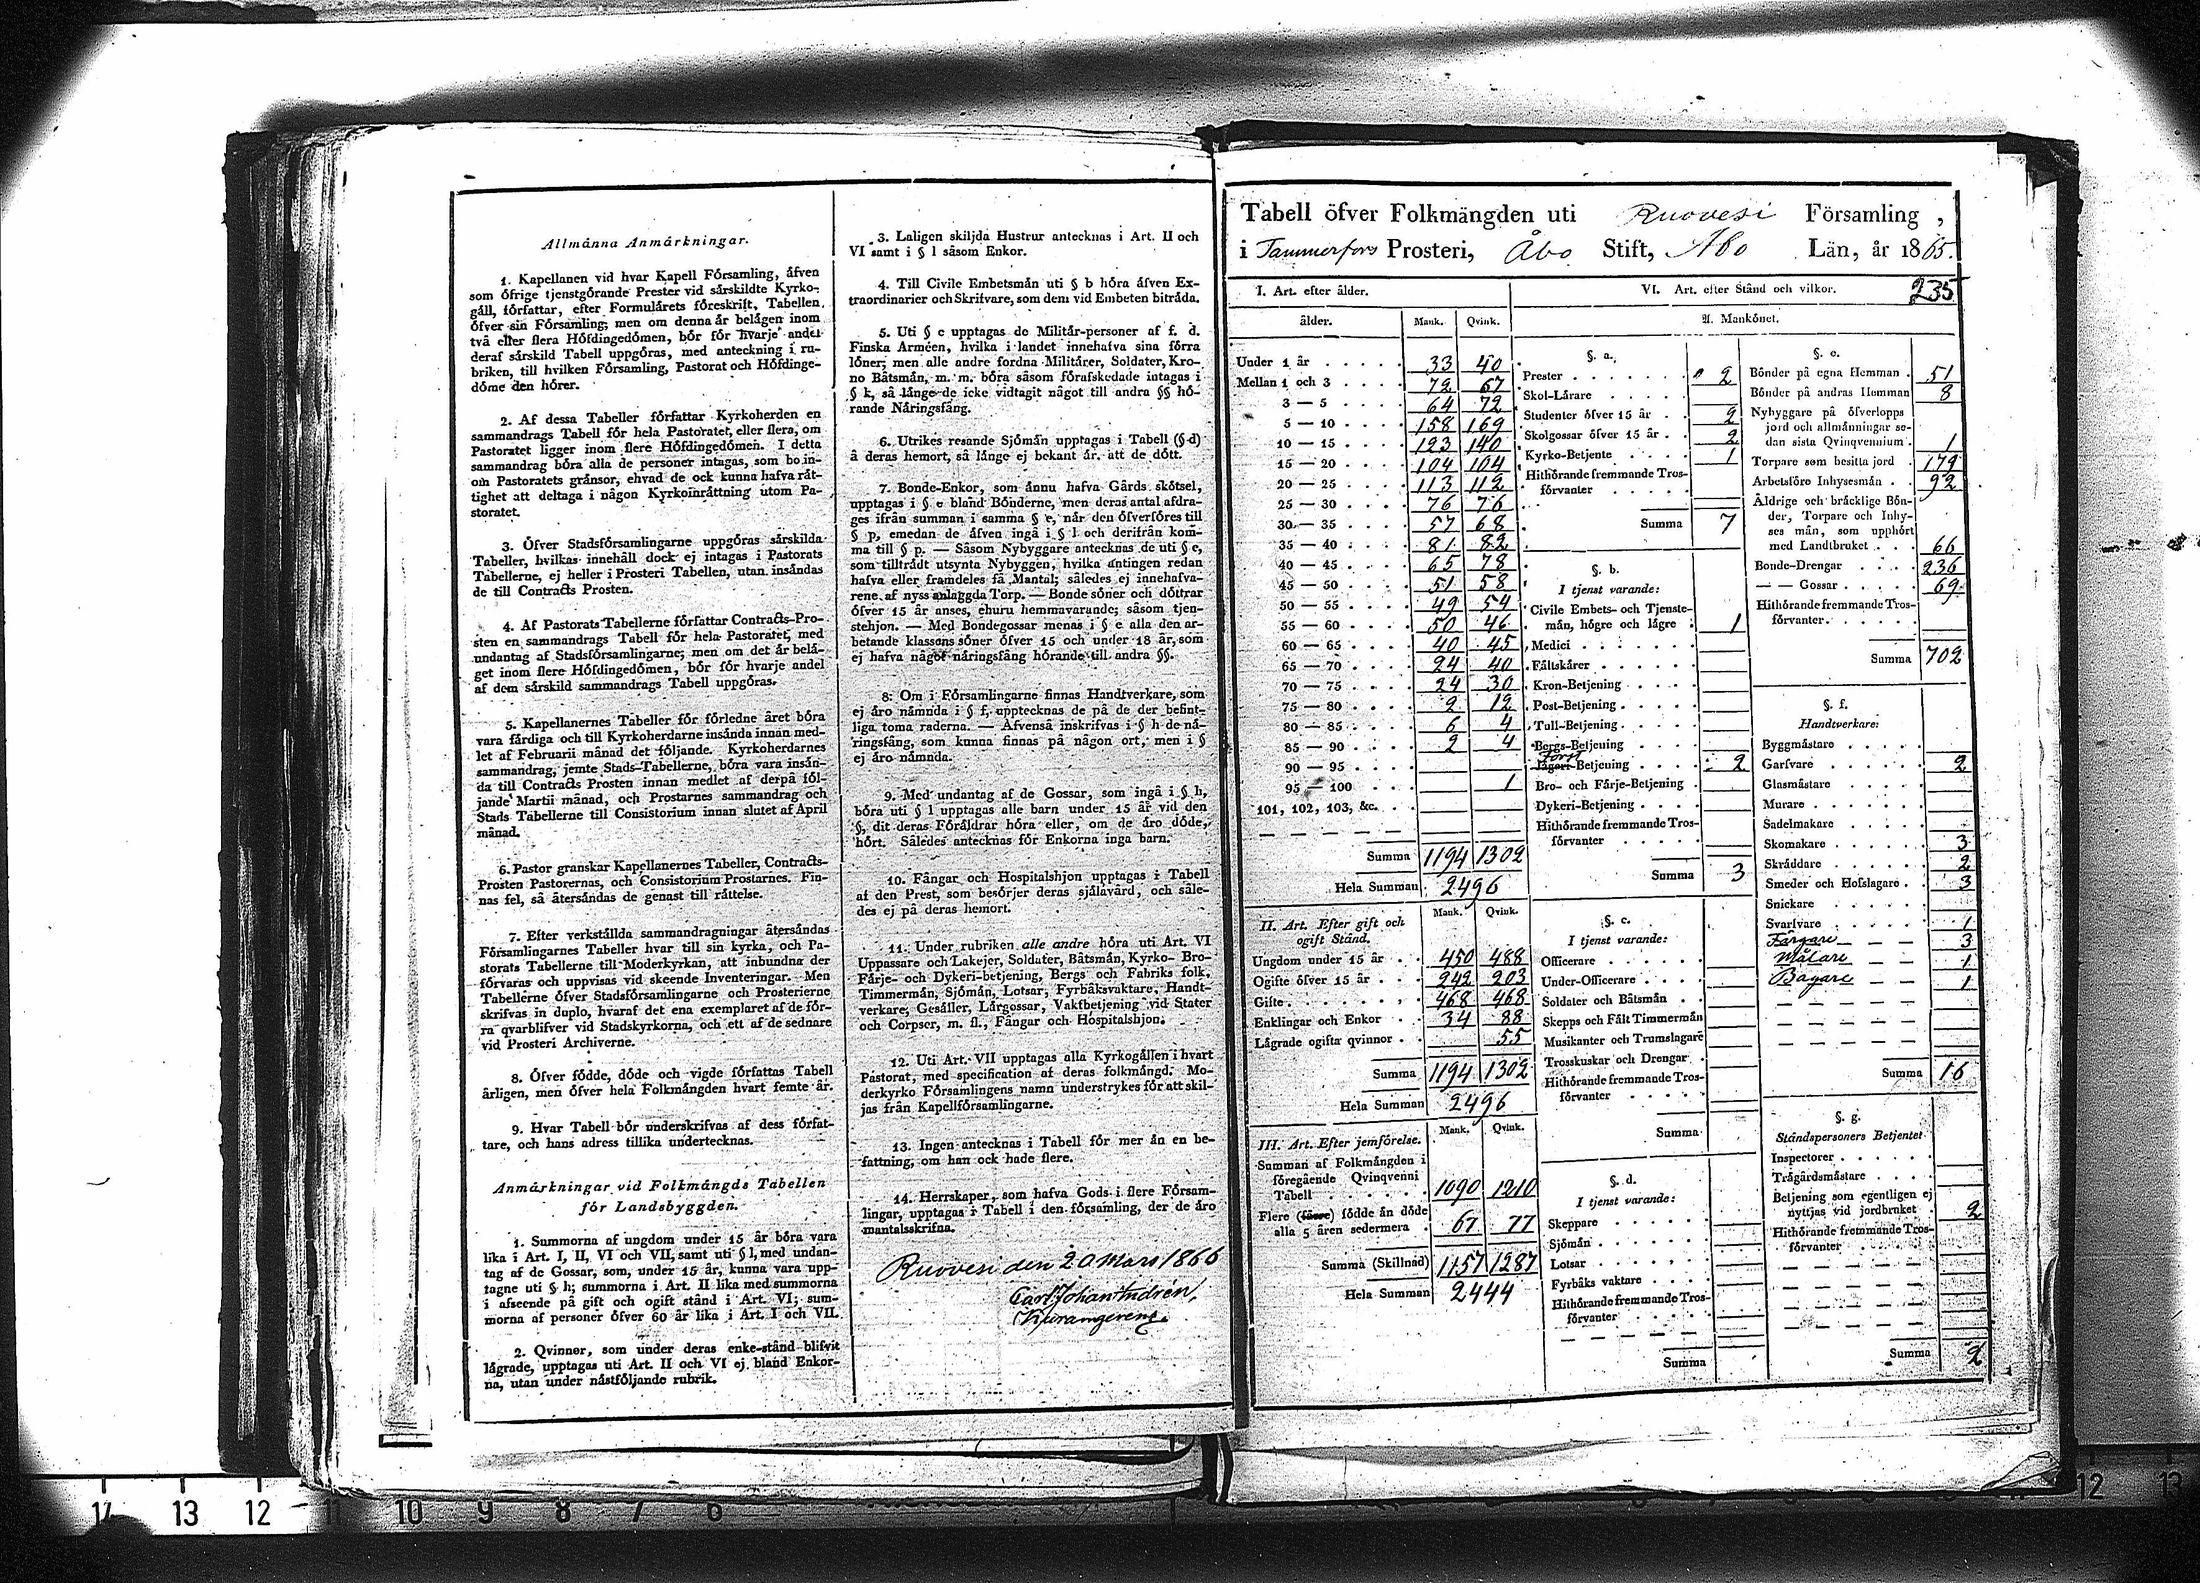 Allmånna Anmårkningar.
1. Kapellanen vid hvar Kapell Fórsamling, åfven
som ófrige tjenstgórande Prester vid sårskildte Kyrko-
gåll, fórfattar, efter Formulårets fóreskrift, Tabellen
ófver sin Fórsamling; men om denna år belågen inom
två eller flera Hófdingedómen, bór fór hvarje andel
deraf sårskild Tabell uppgóras, med anteckning i ru-
briken, till hvilken Fórsamling, Pastorat och Hófdinge-
dóme den hórer.
2. Af dessa Tabeller fórfattar Kyrkoherden en
sammandrags Tabell fór hela Pastoratet, eller flera, om
Pastoratet ligger inom flere Hófdingedómen. I detta
sammandrag bóra alla de personer intagas, som bo in-
om Pastoratets grånsor, ehvad de ock kunna hafva råt-
tighet att deltaga i någon Kyrkoinråttning utom Pa-
storatet.
3. Ófver Stadsfórsamlingarne uppgóras sårskilda
Tabeller, hvilkas innehåll dock ej intages i Pastorats
Tabellerne, ej heller i Prosteri Tabellen, utan insåndas
de till Contracts Prosten.
4. Af Pastorats Tabellerne fórfattar Contracts-Pro-
sten en sammandrags Tabell fór hela Pastoratet, med
undantag af Stadsfórsamlingarne; men om det år belå-
get inom flere Hófdingedómen, bór fór hvarje andel
af dem sårskild sammandrags Tabell uppgóras.
5. Kapellanernes Tabeller fór fórledne året bóra
vara fårdiga och till Kyrkoherdarne insånda innan med-
let af Februarii månad det fóljande. Kyrkoherdarnes
sammandrag, jemte Stads-Tabellerne, bóra vara insån-
da till Contracts Prosten innan medlet af derpå fól-
jande Martii månad, och Prostarnes sammandrag och
Stads Tabellerne till Consistorium innan slutet af April
månad.
6. Pastor granskar Kapellanernes Tabeller, Contracts-
Prosten Pastorernas, och Consistorium Prostarnes. Fin-
nas fel, så återsåndas de genast till råttelse.
7. Efter verkstållda sammandragningar återsåndas
Fórsamlingarnes Tabeller hvar till sin kyrka, och Pa-
storats Tabellerne till Moderkyrkan, att inbundna der
fórvaras och uppvisas vid skeende Inventeringar. Men
Tabellerne ófver Stadsfórsamlingarne och Prosterierne
skrifvas in duplo, hvaraf det ena exemplaret af de fór-
ra qvarblifver vid Stadskyrkorna, och ett af de sednare
vid Prosteri Archiverne.
8. Ófver fódde, dóde och vigde fórfattas Tabell
årligen, men ófver hela Folkmångden hvart femte år.
9. Hvar Tabell bór underskrifvas af dess fórfat-
tare, och hans adress tillika undertecknas.
Anmårkningar vid Folkmångds Tabellen
fór Landsbyggden.
1. Summorna af ungdom under 15 år bóra vara
lika i Art. I, II, VI och VII, samt uti § l, med undan-
tag af de Gossar, som, under 15 år, kunna vara upp-
tagne uti § h; summorna i Art. II lika med summorna
i afseende på gift och ogift stånd i Art. VI; sum-
morna af personer ófver 60 år lika i Art. I och VII.
2. Qvinnor, som under deras enke-stånd blifvit
lågrade, upptagas uti Art. II och VI ej bland Enkor-
na, utan under nåstfóljande rubrik.
3. Laligen skiljda Hustrur antecknas i Art. II och
VI samt i § l såsom Enkor.
4. Till Civile Embetsmån uti § b hóra åfven Ex-
traordinarier och Skrifvare, som dem vid Embeten bitråda.
5. Uti § c upptagas de Militår-personer af f. d.
Finska Arméen, hvilka i landet innehafva sina fórra
lóner; men alle andre fordna Militårer, Soldater, Kro-
no Båtsmån, m. m. bóra såsom fórafskedade intagas i
§ k, så långe de icke vidtagit något till andra §§ hó-
rande Nåringsfång.
6. Utrikes resande Sjómån upptagas i Tabell (§ d)
å deras hemort, så långe ej bekant år, att de dótt.
7. Bonde-Enkor, som ånnu hafva Gårds skótsel,
upptagas i § e bland Bónderne, men deras antal afdra-
ges ifrån summan i samma § e, når den ófverfóres till
§ p, emedan de åfven ingå i § l och derifrån kom-
ma till § p. — Såsom Nybyggare antecknas de uti § e,
som tilltrådt utsynta Nybyggen, hvilka antingen redan
hafva eller framdeles få Mantal; således ej innehafva-
rene af nyss anlaggda Torp. — Bonde sóner och dóttrar
ófver 15 år anses, ehuru hemmavarande, såsom tjen-
stehjon. — Med Bondegossar menas i § e alla den ar-
betande klassens sóner ófver 15 och under 18 år, som
ej hafva något nåringsfång hórande till andra §§.
8. Om i Fórsamlingarne finnas Handtverkare, som
ej åro nåmnda i § f, upptecknas de på de der befint-
liga toma raderna. — Åfvenså inskrifvas i § h de nå-
ringsfång, som kunna finnas på någon ort, men i §
ej åro nåmnda.
9. Med undantag af de Gossar, som ingå i § h,
bóra uti § l upptagas alle barn under 15 år vid den
§, dit deras Fóråldrar hóra eller, om de åro dóde,
hórt. Således antecknas fór Enkorna inga barn.
10. Fångar och Hospitalshjon upptagas i Tabell
af den Prest, som besórjer deras sjålavård, och såle-
des ej på deras hemort.
11. Under rubriken alle andre hóra uti Art. VI
Uppassare och Lakejer, Soldater, Båtsmån, Kyrko- Bro-
Fårje- och Dykeri-betjening, Bergs och Fabriks folk,
Timmermån, Sjómån, Lotsar, Fyrbåksvaktare, Handt-
verkare, Gesåller, Lårgossar, Vaktbetjening vid Stater
och Corpser, m. fl., Fångar och Hospitalshjon.
12. Uti Art. VII upptagas alla Kyrkogållen i hvart
Pastorat, med specification af deras folkmångd. Mo-
derkyrko Fórsamlingens namn understrykes fór att skil-
jas från Kapellfórsamlingarne.
13. Ingen antecknas i Tabell fór mer ån en be-
fattning, om han ock hade flere.
14. Herrskaper, som hafva Gods i flere Fórsam-
lingar, upptagas i Tabell i den fórsamling, der de åro
mantalsskrifna.
Ruovesi den 20 Mars 1866
Carl Johan Andrén,
Tabell ófver Folkmängden uti Ruovesi Församling,
i Tammerfors Prosteri, Åbo Stift, Åbo Län, år 1865.
235
I. Art. efter ålder.
ålder. Mank. Qvink.
Under 1 år 33 40
Mellan 1 och 3 72 67
3 — 5 64 72
5 — 10 158 169
10 — 15 123 140
15 — 20 104 104
20 — 25 113 112
25 — 30 76 76
30 — 35 57 68
35 — 40 81 82
40 — 45 65 78
45 — 50 51 58
50 — 55 49 54
55 — 60 50 46
60 — 65 40 45
65 — 70 24 40
70 — 75 24 30
75 — 80 2 12
80 — 85 6 4
85 — 90 2 4
90 — 95
95 — 100 1
101, 102, 103, &c.
Summa 1194 1302
Hela Summan 2496
II. Art. Efter gift och
ogift Stånd.
Mank. Qvink.
Ungdom under 15 år 450 488
Ogifte ófver 15 år 242 203
Gifte 468 468
Enklingar och Enkor 34 88
Lågrade ogifta qvinnor 55
Summa 1194 1302
Hela Summan 2496
III. Art. Efter jemfórelse.
Mank. Qvink.
Summan af Folkmångden i
fóregående Qvinqvenni
Tabell 1090 1210
Flere (fårre) fódde ån dóde
alla 5 åren sedermera 67 77
Summa (Skillnad) 1157 1287
Hela Summan 2444
VI. Art. efter Stånd och vilkor.
A. Mankónet.
§. a.
Prester 2
Skol-Lårare
Studenter ófver 15 år 2
Skolgossar ófver 15 år 2
Kyrko-Betjente 1
Hithórande fremmande Tros-
fórvanter
Summa 7
§. b.
I tjenst varande:
Civile Embets- och Tjenste-
mån, hógre och lågre 1
Medici
Fåltskårer
Kron-Betjening
Post-Betjening
Tull-Betjening
Bergs-Betjening
Forst
Jägeri-Betjening 2
Bro- och Fårje-Betjening
Dykeri-Betjening
Hithórande fremmande Tros-
fórvanter
Summa 3
§. c.
I tjenst varande:
Officerare
Under-Officerare
Soldater och Båtsmån
Skepps och Fålt Timmermån
Musikanter och Trumslagare
Trosskuskar och Drengar
Hithórande fremmande Tros-
fórvanter
Summa
§. d.
I tjenst varande:
Skeppare
Sjómån
Lotsar
Fyrbåks vaktare
Hithórande fremmande Tros-
fórvanter
Summa
§. e.
Bónder på egna Hemman 51
Bónder på andras Hemman 8
Nybyggare på ófverlopps
jord och allmånningar se-
dan sista Qvinqvennium 1
Torpare som besitta jord 179
Arbetsfóre Inhysesmån 92
Åldrige och bråcklige Bón-
der, Torpare och Inhy-
ses mån, som upphórt
med Landtbruket 66
Bonde-Drengar 236
— — Gossar 69
Hithórande fremmande Tros-
fórvanter
Summa 702
§. f.
Handtverkare:
Byggmåstare
Garfvare 2
Glasmåstare
Murare
Sadelmakare
Skomakare 3
Skråddare 2
Smeder och Hofslagare 3
Snickare
Svarfvare 1
Färgare 3
Målare 1
Bagare 1
Summa 16
§. g.
Ståndspersoners Betjente:
Inspectorer
Trågårdsmåstare
Betjening som egentligen ej
nyttjas vid jordbruket 2
Hithórande fremmande Tros-
fórvanter
Summa 2
14 13 12 11 10 9 8 7 6
12 13